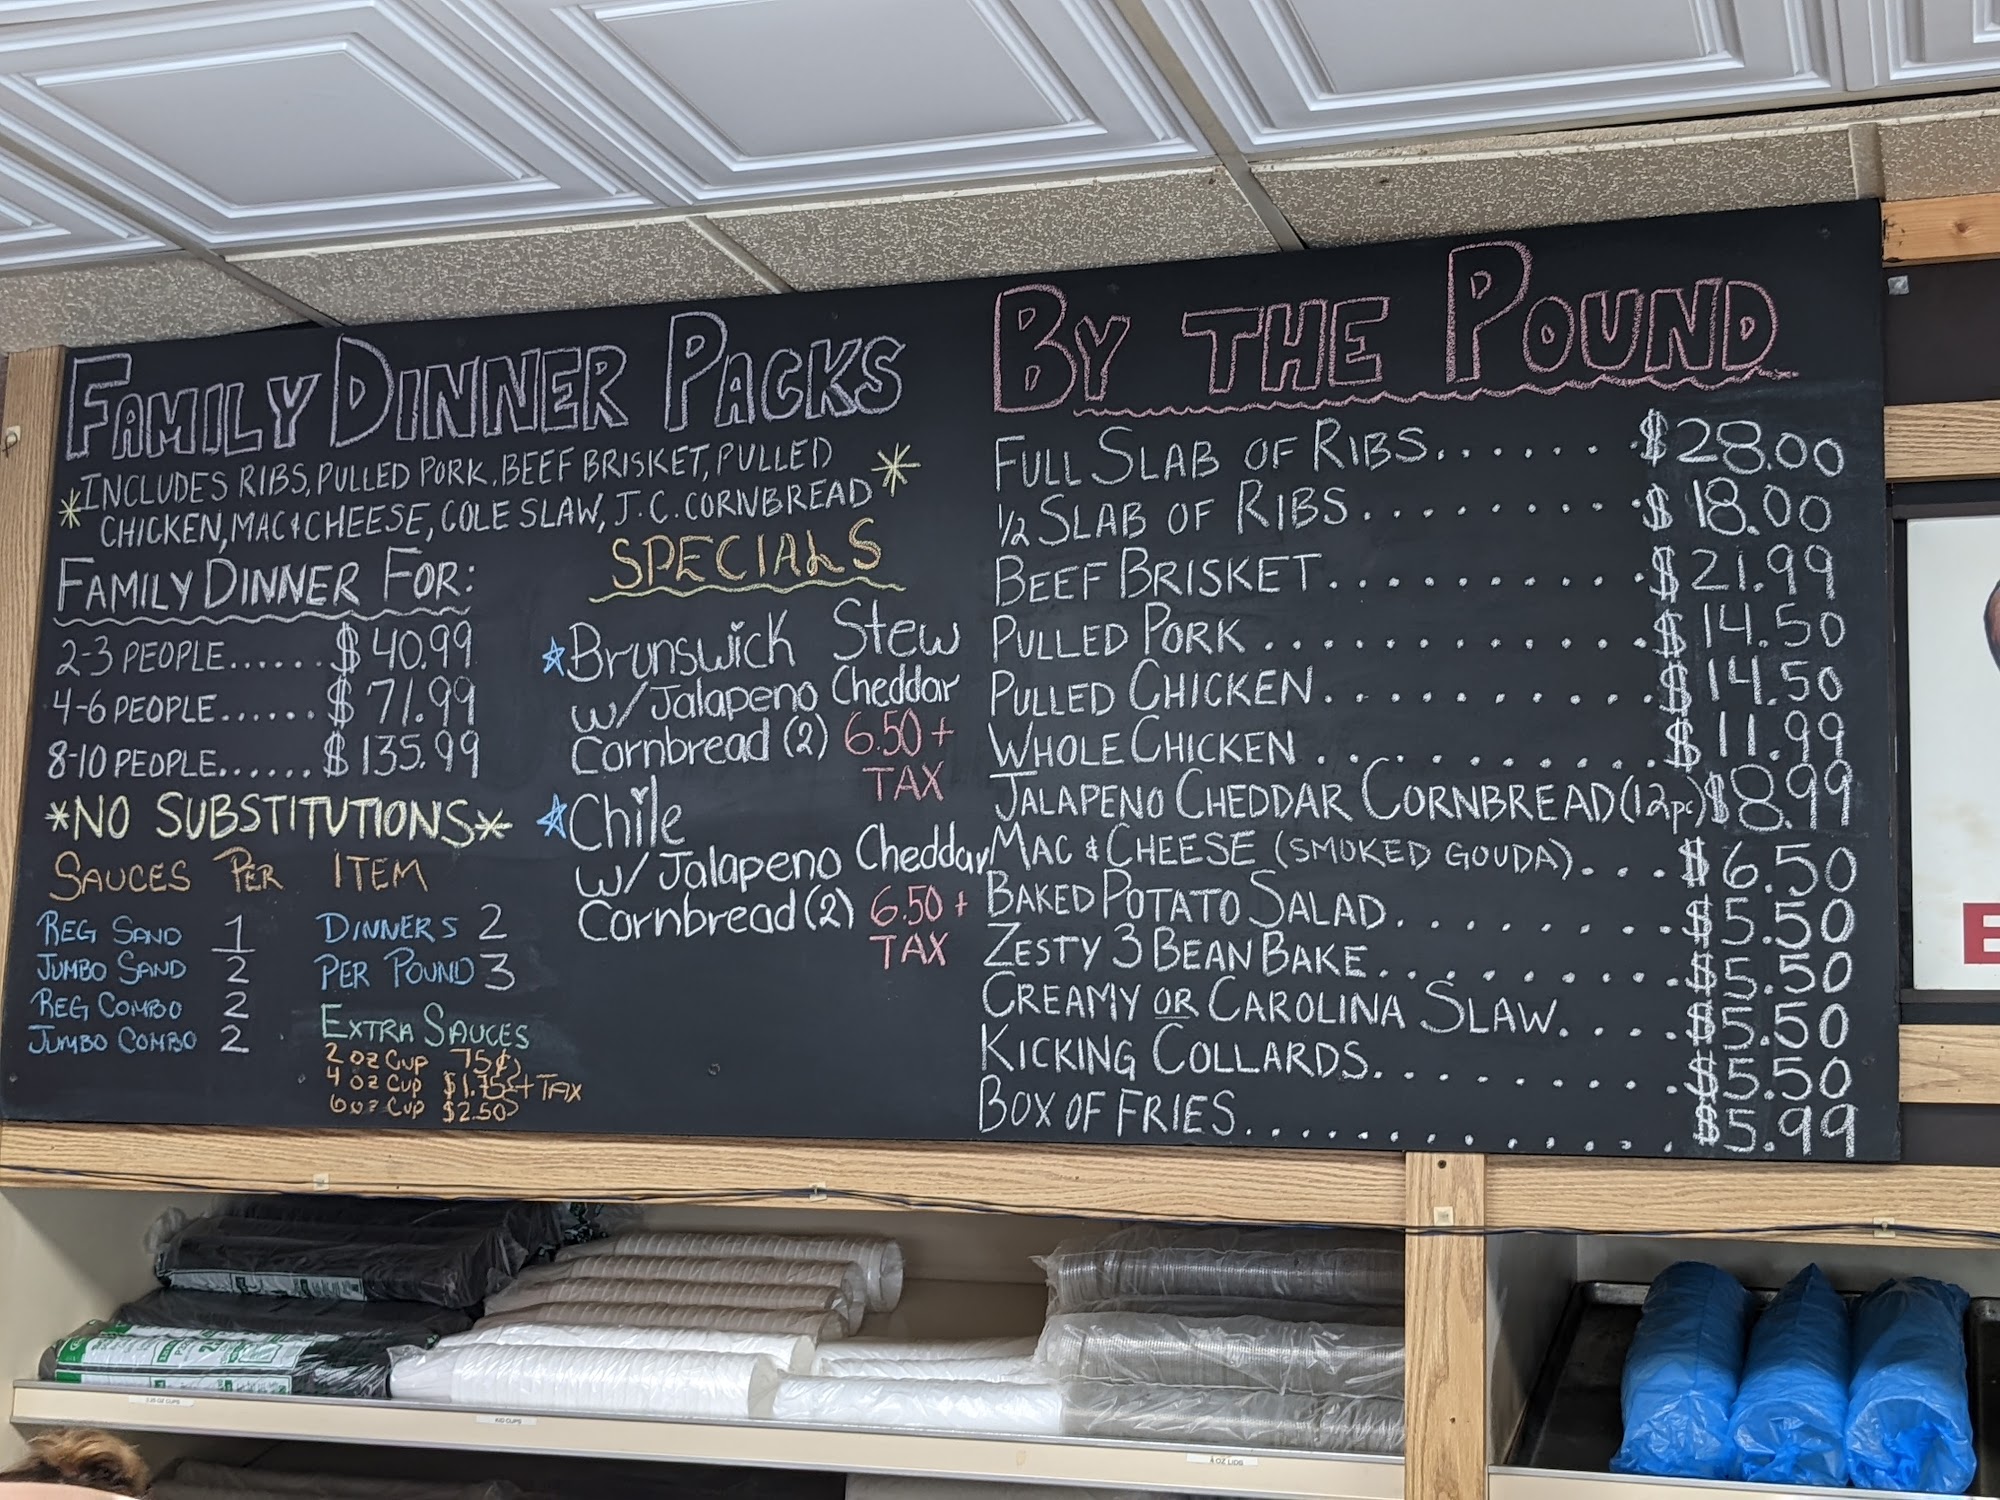 FAMILY DINNER PACKS
*INCLUDES RIBS, PULLED PORK, BEEF BRISKET, PULLED *
CHICKEN, MAC & CHEESE, COLE SLAW, J.C. CORNBREAD
FAMILY DINNER FOR:
2-3 PEOPLE...... $ 40.99
4-6 PEOPLE...... $ 71.99
8-10 PEOPLE...... $ 135.99
*NO SUBSTITUTIONS*
SAUCES PER ITEM
REG SAND 1
JUMBO SAND 2
REG COMBO 2
JUMBO COMBO 2
DINNERS 2
PER POUND 3
EXTRA SAUCES
2 OZ CUP 75¢
4 OZ CUP $1.75 + TAX
6 OZ CUP $2.50
SPECIALS
Brunswick Stew
w/ Jalapeno Cheddar
Cornbread (2) 6.50 +
TAX
Chile
w/ Jalapeno Cheddar
Cornbread (2) 6.50 +
TAX
BY THE POUND
FULL SLAB OF RIBS....... $28.00
1/2 SLAB OF RIBS........ $18.00
BEEF BRISKET.......... $21.99
PULLED PORK............ $14.50
PULLED CHICKEN.......... $14.50
WHOLE CHICKEN.......... $11.99
JALAPENO CHEDDAR CORNBREAD (12pc) $8.99
MAC & CHEESE (SMOKED GOUDA).... $6.50
BAKED POTATO SALAD........ $5.50
ZESTY 3 BEAN BAKE......... $5.50
CREAMY OR CAROLINA SLAW.... $5.50
KICKING COLLARDS......... $5.50
BOX OF FRIES............ $5.99
KID CUPS